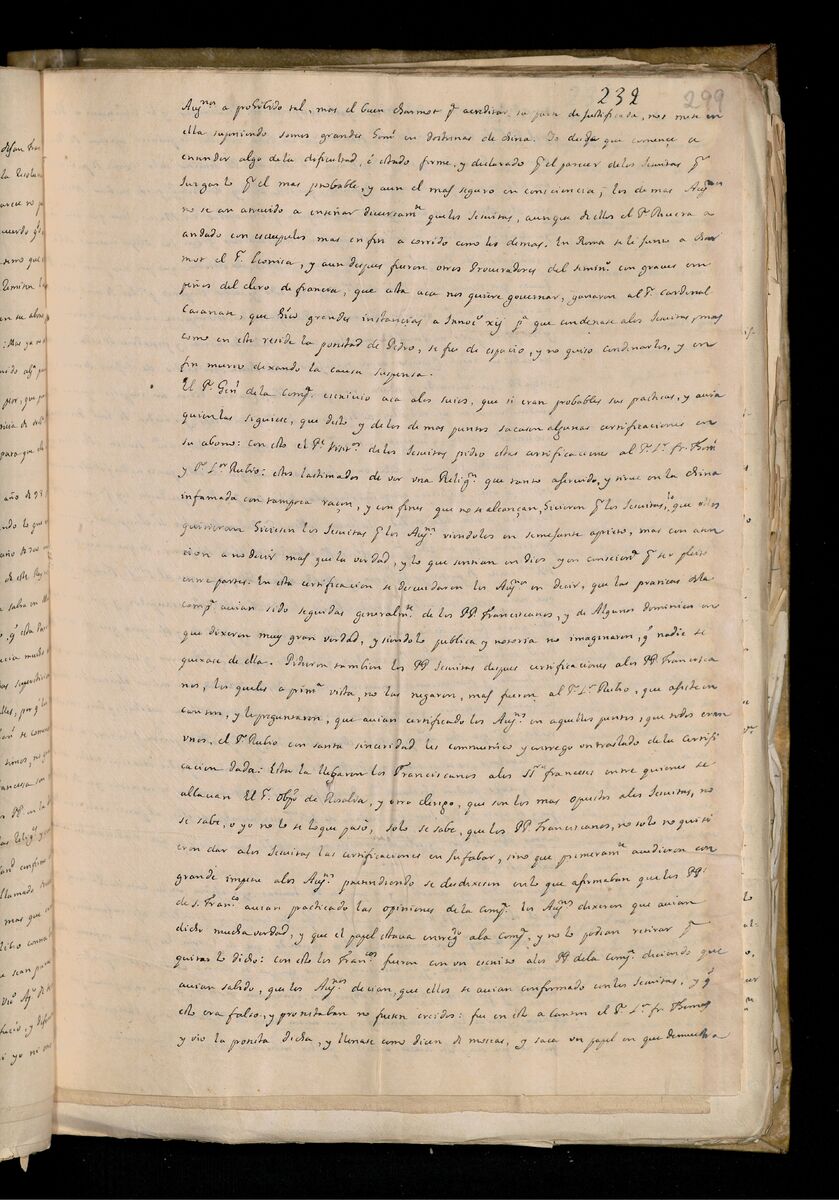 232 299
Aug.nos a prohibido tal, mas el buen charmot p.a acreditar su parte de justificada, nos mete en
ella suponiendo somos grandes hom.s en doctrinas de china. Yo desde que comence a
entender algo de la dificultad, é estado firme, y declarado q̃ el parecer de los Jesuitas q̃
Jurgarlo q̃ el mas probable, y aun el mas seguro en consciencia; los demas Aug.nos
no se an atrevido a enseñar diversam.te que los Jesuitas, aunque de ellos el P.e Rivera a
andado con escrupulos mas en fin a corrido como los demas. En Roma se le junto a char
mot el S.r Leonisa, y aun despues fueron otros Procuradores del semin.o con graves em
peños del clero de francia, que asta aca nos quiere governar, ganaron al S.r Cardenal
Casanate, que hiço grandes instancias a Innoc.o xij p.a que condenase a los Jesuitas, mas
como en este reside la potestad de Pedro, se fue de espacio, y no quiso condenarlos, y en
fin murio dexando la causa suspensa.
El P.e Gen.l de la Comp.a escrivio aca a los suios, que si eran probables sus practicas, y avia
quien las siguiese, que desto y de los demas puntos sacasen algunas certificaciones en
su abono: con esto el P.e Visit.or de los Jesuitas pidio estas certificaciones al P.e L.r fr. Thom.s
y P.e L.or Rubio: estos lastimados de ver una Relig.n que tanto a servido, y sirve en la china
infamada con tampoca raçon, y con fines que no se alcançan, hicieron p.r los Jesuitas, lo que ellos
quisieran hiciesen los Jesuitas p.r los Aug.nos viendolos en semejante aprieto, mas con aten
cion a no decir mas que la verdad, y lo que sentian en Dios y en conscien.a p.r ser pleito
entre partes: En esta certificacion se descuidaron los Aug.nos en decir, que las praticas dela
comp.a avian sido seguidas generalm.te de los PP. Franciscanos, y de Algunos dominicos en
que dixeron muy gran verdad, y siendolo publica y notoria no imaginaron, q̃ nadie se
quexase de ella. Pidieron tambien los PP Jesuitas despues certificaciones a los PP Francisca
nos, los quales a prim.a vista, no las negaron, mas fueron al P.e L.r Rubio, que asiste en
canton, y le preguntaron, que avian certificado los Aug.nos en aquellos puntos, que todos eran
unos, el P.e Rubio con santa sinceridad les communico y entrego un traslado de la Certifi
cacion dada: Esta la llebaron los Franciscanos a los SS.res franceses entre quienes se
allavan El S.r Obpo de Rosalia, y otro clerigo, que son los mas opuestos a los Jesuitas, no
se sabe, o yo no lo se lo que pasò, solo se sabe, que los PP. Franciscanos, no solo no quisi
eron dar a los Jesuitas las certificaciones en su fabor, sino que primeram.te acudieron con
grande impetu a los Aug.nos pretendiendo se desdixesen en lo que afirmaban que los PP.s
de S. Fran.co avian practicado las opiniones de la Comp.a los Aug.nos dixeron que avian
dicho mucha verdad, y que el papel estava entreg.do a la Comp.a y no lo podian retirar p.a
quitar lo dicho: con esto los Fran.cos fueron con un escrito a los PP de la Comp.a diciendo que
avian sabido, que los Aug.nos decian, que ellos se avian conformado con los Jesuitas, y q̃
esto era falso, y protestaban no fuesen creidos: fue en esto a Canton el P.e L.r fr. Thomas
y vio la protesta dicha, y llenase como dicen de moscas, y saca un papel en que demuestra